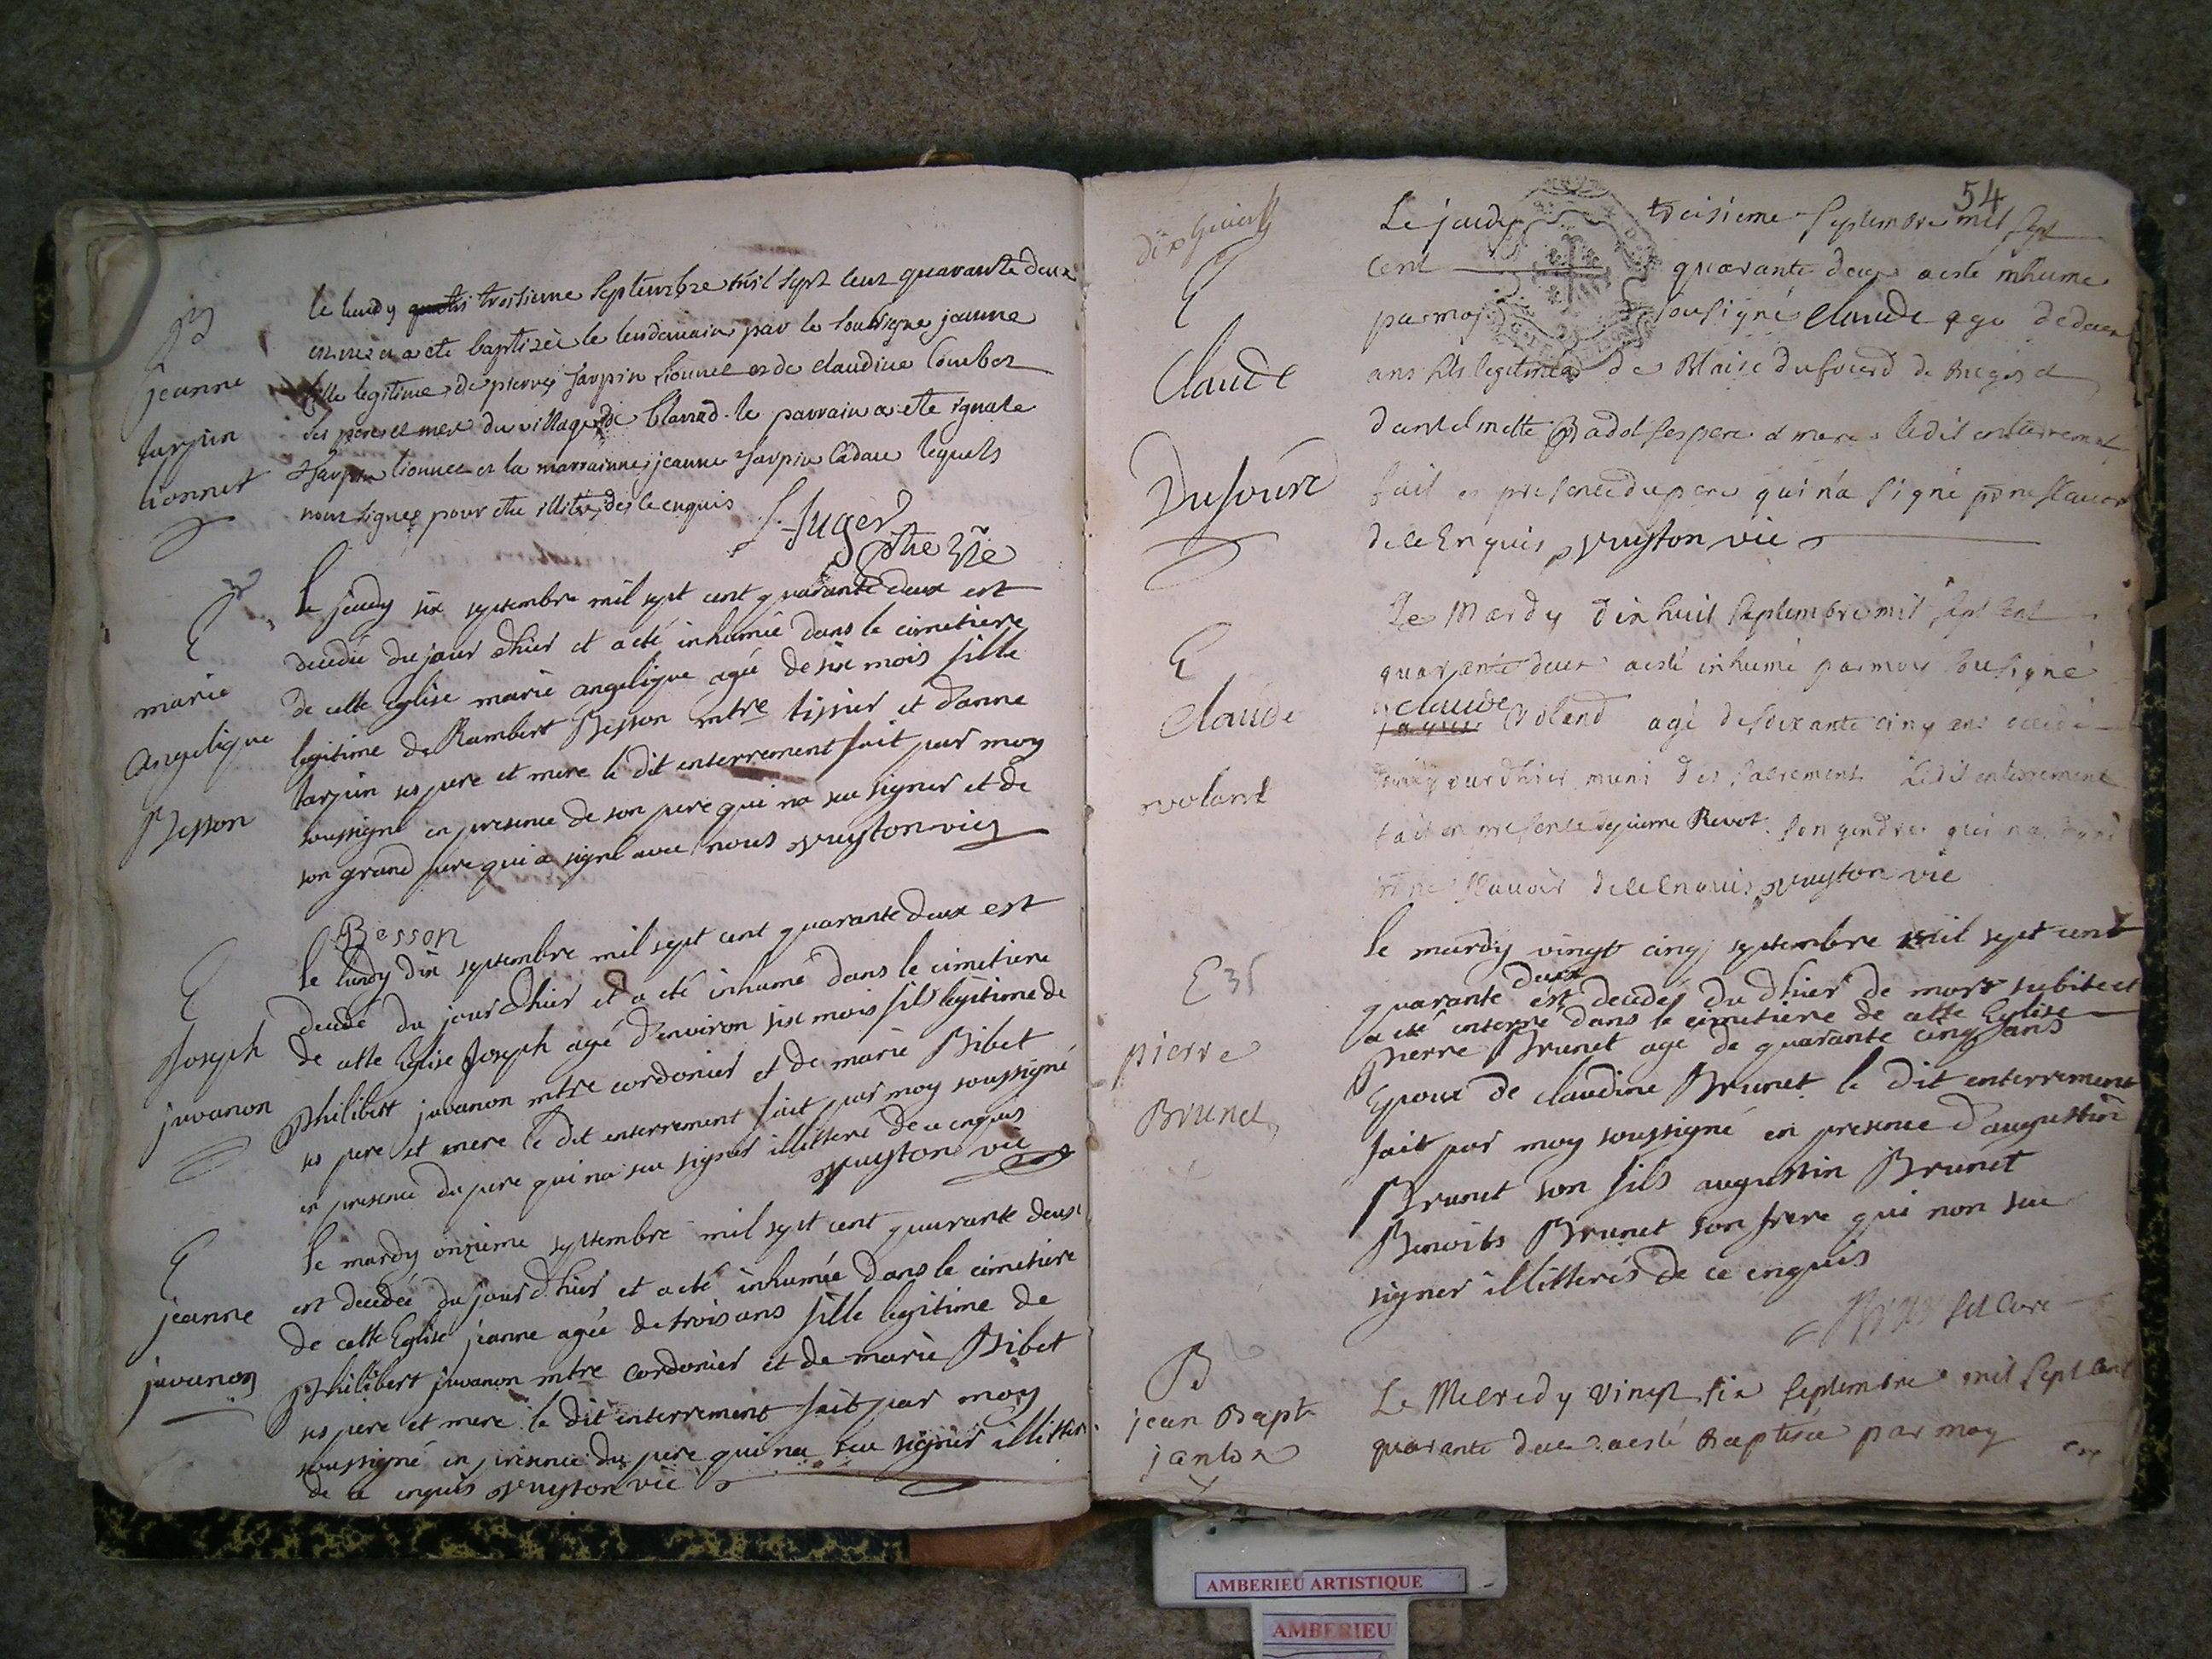 B
jeanne
tarpin
lionnet
le lundy troisieme septembre mil sept cent quarante deux
est née et a eté baptisée le lendemain par le soussigne jeanne
fille legitime de pierre tarpin lionnet et de claudine Combet
ses pere et mere du village de blanad le parrain a ete ignace
tarpin lionnet et la marrainne jeanne tarpin lequels
nont signes pour etre illitrés de ce enquis
E
marie
angelique
Besson
le jeudy six septembre mil sept cent quarante deux est
decedée du jour dhier et a eté inhumée dans le cimetiere
de cette Eglise marie angelique agée de six mois fille
legitime de Rambert Besson mtre tissier et danne
tarpin ses pere et mere le dit enterrement fait par moy
soussigné en presence de son pere qui na sceu signer et de
son grand pere qui a signé avec nous vuyton vic
Besson
E
Joseph
juvanon
le lundy dix septembre mil sept cent quarante deux est
decedé du jour dhier et a eté inhumé dans le cimetiere
de cette Eglise Joseph agé denviron six mois fils legitime de
Philibert juvanon mtre cordonier et de marie Bibet
ses pere et mere le dit enterrement fait par moy soussigné
en presence du pere qui na sceu signer illitteré de ce enquis
vuyton vic
E
jeanne
juvanon
le mardy onzieme septembre mil sept cent quarante deux
est decedée du jour dhier et a eté inhumée dans le cimetiere
de cette Eglise jeanne agée de trois ans fille legitime de
Philibert juvanon mtre cordonier et de marie Bibet
ses pere et mere le dit enterrement fait par moy
soussigné en presence du pere qui na sceu signer illitteré
de ce enquis vuyton vic
54
E
Claude
Dufourd
Le jeudy treisieme septembre mil sept
cent quarante deux a esté inhumé
par moy sousigné Claude age de deux
ans fils legitime de Blaise dufourd de
dantelmette Badol ses pere et mere ledit enterrement
fait en presence du pere qui n'a signé pour ne scauoir
de ce Enquis vuyton vic
E
Claude
rolant
Le Mardy dixhuit septembre mil sept cent
quarante deux a esté inhumé par moy sousigné
claude
Roland agé de soixante cinq ans decedé
dhier muni des sacrements ledit enterrement
fait en presence de pierre Revot son gendre qui na signé
pour ne scauoir de ce Enquis vuyton vic
E
pierre
Brunet
le mardy vingt cinq septembre mil sept cent
quarante deux est decedé du dhier de mort subite et
a eté enterré dans le cimetiere de cette Eglise
Pierre Brunet agé de quarante cinq ans
Epoux de claudine Brunet le dit enterrement
fait par moy soussigné en presence d'augustin
Brunet son fils augustin Brunet
Benoits Brunet son frere qui non sceu
signer illitterés de ce enquis
B
jean Bapt
janton
Le Mecredy vingt six septembre mil sept cent
quarante deux a esté Baptisée par moy
AMBERIEU ARTISTIQUE
AMBERIEU